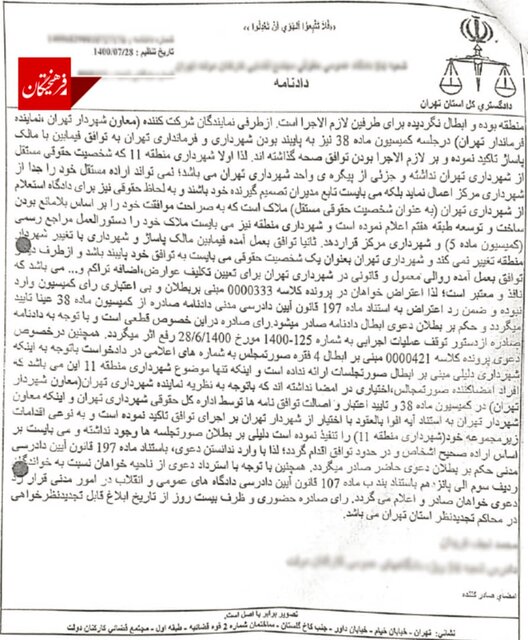 «فَلا تَتَّبِعُوا الْهَوَى أَنْ تَعْدِلُوا »
تاریخ تنظیم : 1400/07/28
فرهیختگان
دادنامه
دادگستری کل استان تهران
منطقه بوده و ابطال نگردیده برای طرفین لازم الاجرا است. ازطرفی نمایندگان شرکت کننده (معاون شهردار تهران ،نماینده
فرماندار تهران) درجلسه کمیسیون ماده 38 نیز به پایبند بودن شهرداری و فرمانداری تهران به توافق فیمابین با مالک
پاساژ تاکید نموده و بر لازم الاجرا بودن توافق صحه گذاشته اند. لذا اولا شهرداری منطقه 11 که شخصیت حقوقی مستقل
از شهرداری تهران نداشته و جزئی از پیکره ی واحد شهرداری تهران می باشد؛ نمی تواند اراده مستقل خود را جدا از
شهرداری مرکز اعمال نماید بلکه می بایست تابع مدیران تصمیم گیرنده خود باشند و به لحاظ حقوقی نیز برای دادگاه استعلام
از شهرداری تهران (به عنوان شخصیت حقوقی مستقل) ملاک است که به صراحت موافقت خود را بر اساس بلامانع بودن
ساخت و توسعه طبقه هفتم اعلام نموده است و شهرداری منطقه نیز می بایست ملاک خود را دستورالعمل مراجع رسمی
(کمیسیون ماده 5) و شهرداری مرکز قراردهد. ثانیا توافق بعمل آمده فیمابین مالک پاساژ و شهرداری با تغییر شهردار
منطقه تغییر نمی کند و شهرداری تهران بعنوان یک شخصیت حقوقی می بایست به توافق خود پایبند باشد و ازطرف
توافق بعمل آمده روالی معمول و قانونی در شهرداری تهران برای تعیین تکلیف عوارض،اضافه تراکم و... می باشد که
نافذ و معتبر است؛ لذا اعتراض خواهان در پرونده کلاسه 0000333 مبنی بربطلان و بی اعتباری رای کمیسیون وارد
نبوده و ضمن رد اعتراض به استناد ماده 197 قانون آیین دادرسی مدنی دادنامه صادره از کمیسیون ماده 38 عینا تایید
میگردد و حکم بر بطلان دعوی ابطال دادنامه صادر میشود.رای صادره دراین خصوص قطعی است و با توجه به دادنامه
صادره ازدستور توقف عملیات اجرایی به شماره 125-1400 مورخ 28/6/1400 رفع اثر میگردد. همچنین درخصوص
دعوی پرونده کلاسه 0000421 مبنی بر ابطال 4 فقره صورتمجلس به شماره های اعلامی در دادخواست باتوجه به اینکه
شهرداری دلیلی مبنی بر ابطال صورتجلسات ارائه نداده است و اینکه تنها موضوع شهرداری منطقه 11 این می باشد که
افراد امضاکننده صورتمجالس،اختیاری در امضا نداشته اند که باتوجه به نظریه نماینده شهرداری تهران(معاون شهردار
تهران) در کمیسیون ماده 38 و تایید اعتبار و اصالت توافق نامه ها توسط اداره کل حقوقی شهرداری تهران و اینکه معاون
شهردار تهران به استناد آیه اوفوا بالعقود با اختیار از شهردار تهران بر اجرای توافق تاکید نموده است و به نوعی اقدامات
زیرمجموعه خود(شهرداری منطقه 11) را تنفیذ نموده است دلیلی بر بطلان صورتجلسه ها وجود نداشته و می بایست بر
اساس اراده صحیح اشخاص و در حدود توافق اقدام گردد؛ لذا با وارد ندانستن دعوی، باستناد ماده 197 قانون آیین دادرسی
مدنی حکم بر بطلان دعوی حاضر صادر میگردد. همچنین با توجه به استرداد دعوی از ناحیه خواهان نسبت به
ردیف سوم الی پانزدهم باستناد بند ب ماده 107 قانون آیین دادرسی دادگاه های عمومی و انقلاب در امور مدنی قرار رد
دعوی خواهان صادر و اعلام می گردد. رای صادره حضوری و ظرف بیست روز از تاریخ ابلاغ قابل تجدیدنظرخواهی
در محاکم تجدیدنظر استان تهران می باشد.
امضای صادر کننده
تصویر برابر با اصل است.
نشانی: تهران - خیابان خیام - خیابان داور - جنب کاخ گلستان - ساختمان شماره 2 قوه قضائیه - طبقه اول - مجتمع قضائی کارکنان دولت